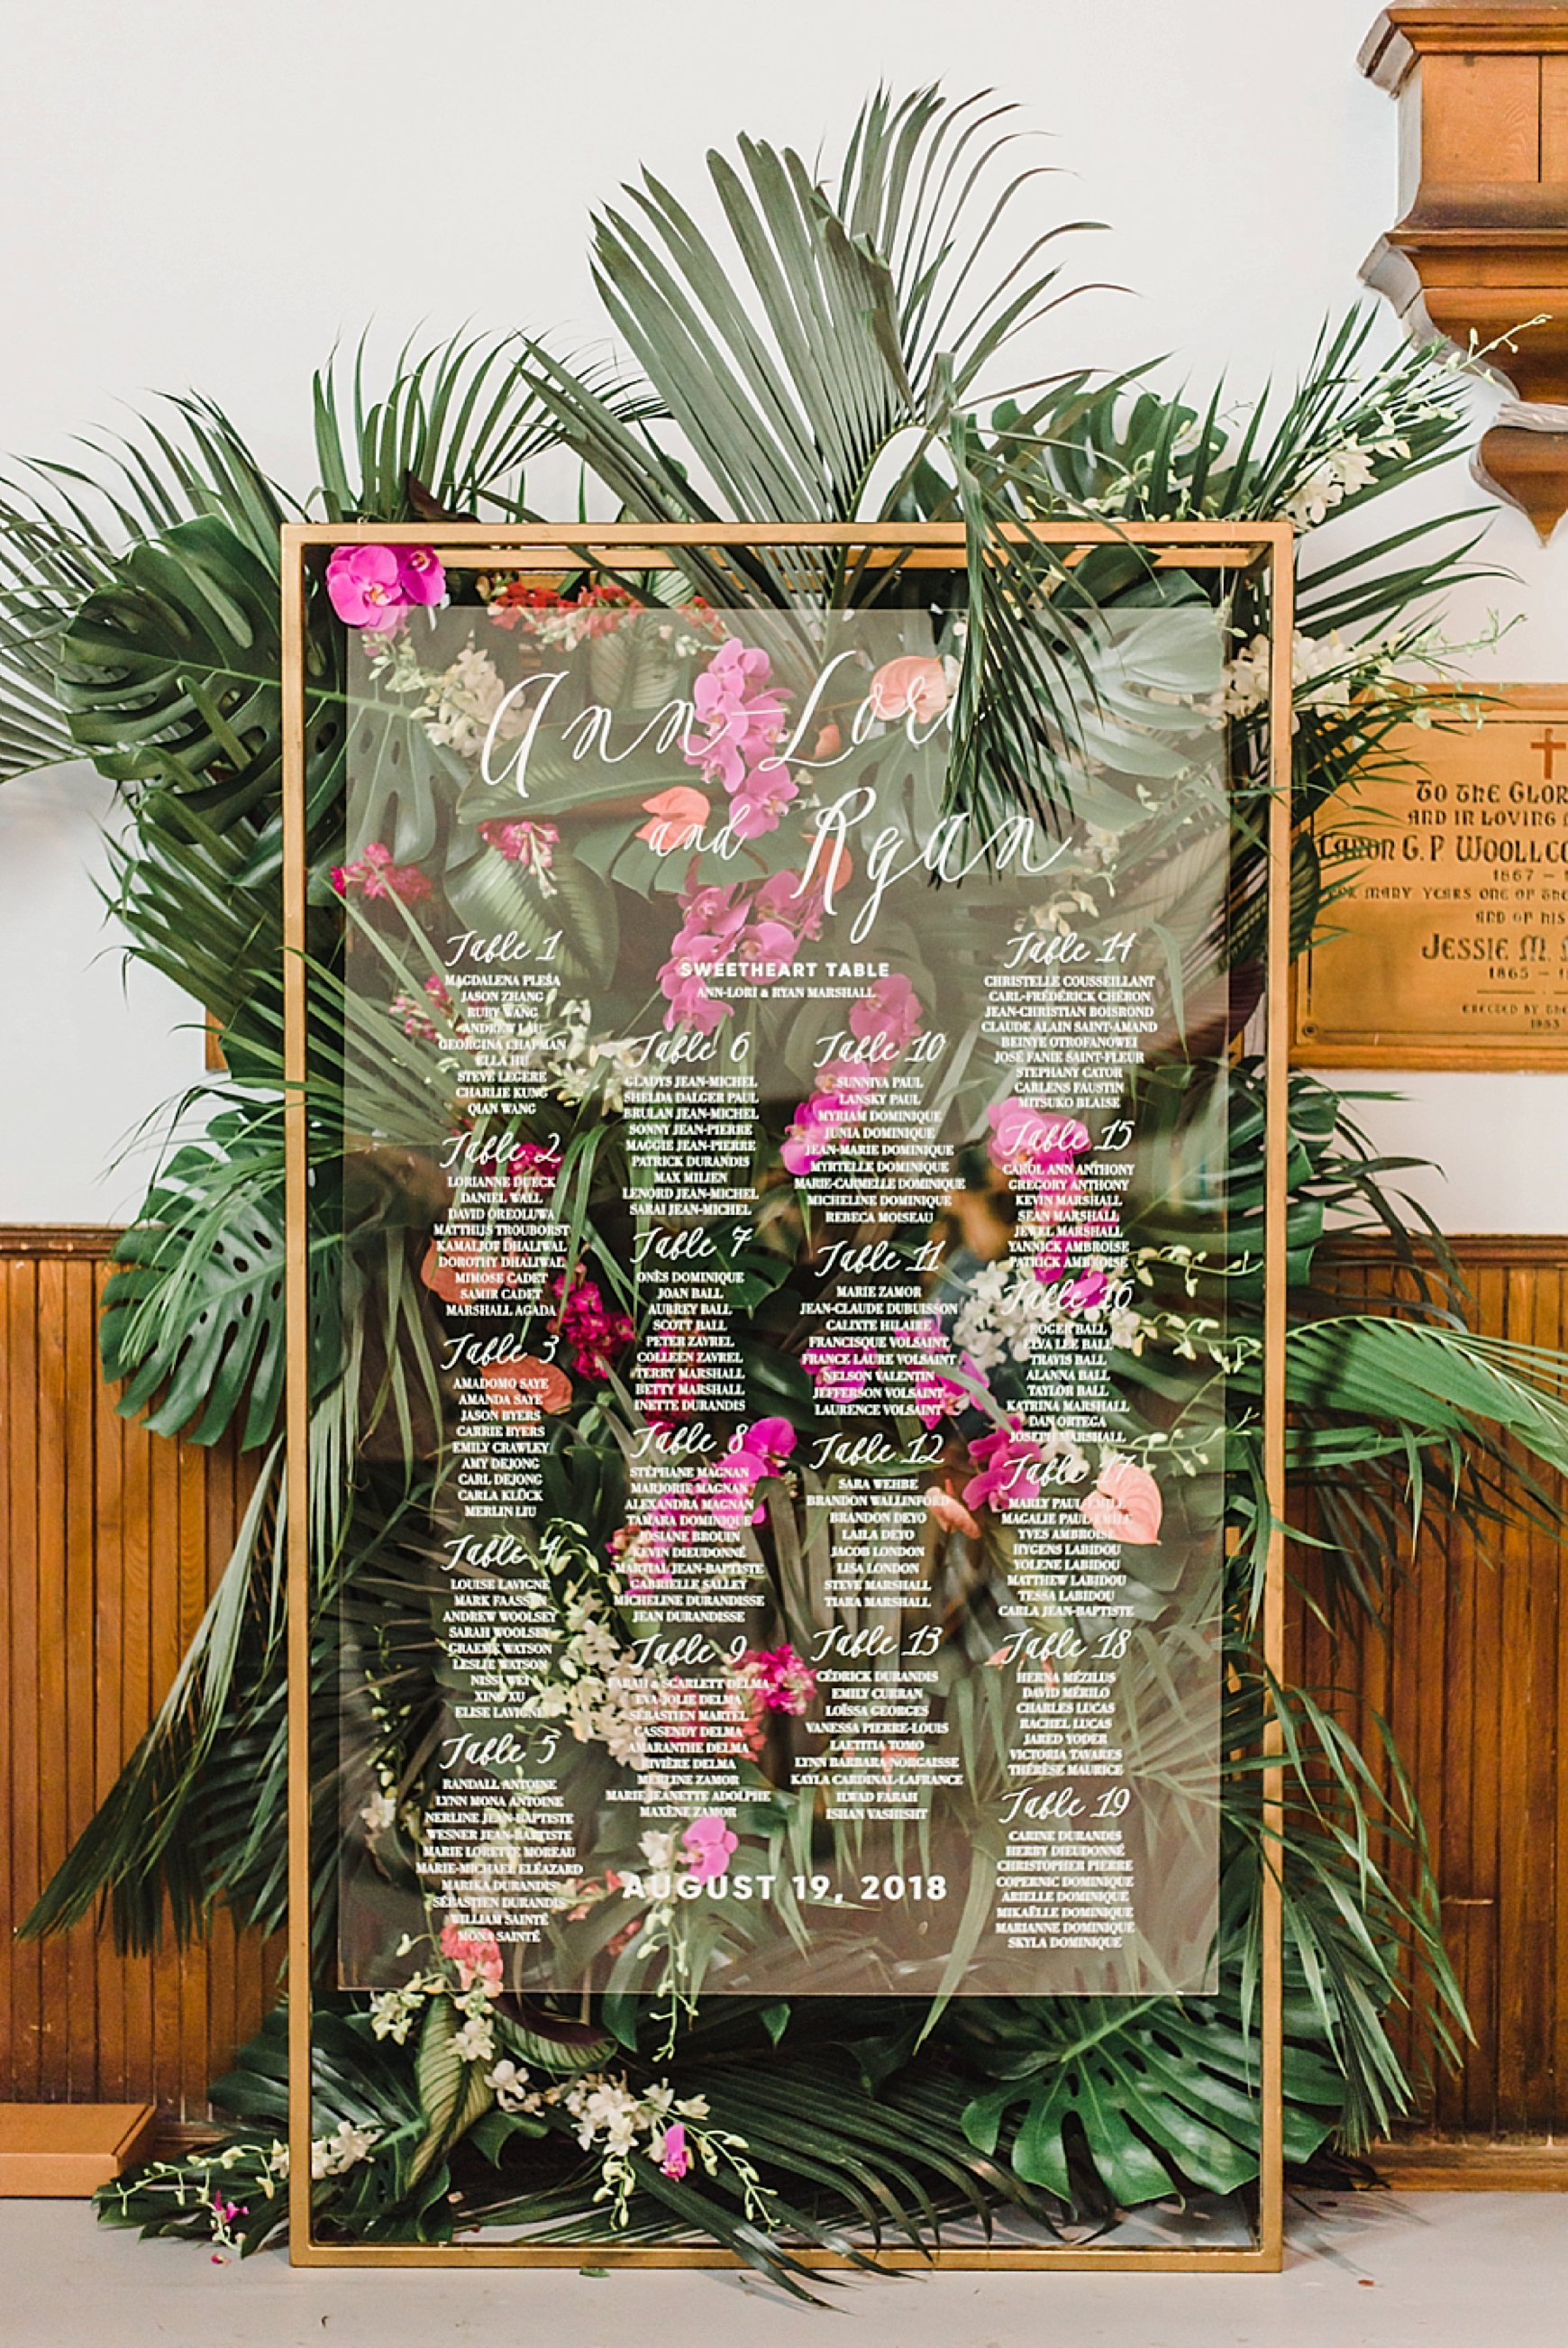 Ann-Lori
and Ryan
Table 1
MAGDALENA PLESA
JASON ZHANG
RUBY WANG
ANDREW LAU
GEORGINA CHAPMAN
ELLA HU
STEVE LEGERE
CHARLIE KUNG
QIAN WANG
Table 2
LORIANNE DUECK
DANIEL WALL
DAVID OREOLUWA
MATTHIJS TROUBORST
KAMALJOT DHALIWAL
DOROTHY DHALIWAL
MIMOSE CADET
SAMIR CADET
MARSHALL AGADA
Table 3
AMADOMO SAYE
AMANDA SAYE
JASON BYERS
CARRIE BYERS
EMILY CRAWLEY
AMY DEJONG
CARL DEJONG
CARLA KLÜCK
MERLIN LIU
Table 4
LOUISE LAVIGNE
MARK FAASSEN
ANDREW WOOLSEY
SARAH WOOLSEY
GRAEME WATSON
LESLIE WATSON
NISSI WEI
XING XU
ELISE LAVIGNE
Table 5
RANDALL ANTOINE
LYNN MONA ANTOINE
NERLINE JEAN-BAPTISTE
WESNER JEAN-BAPTISTE
MARIE LORETTE MOREAU
MARIE-MICHAEL ELÉAZARD
MARIKA DURANDIS
SÉBASTIEN DURANDIS
WILLIAM SAINTÉ
MONA SAINTÉ
SWEETHEART TABLE
ANN-LORI & RYAN MARSHALL
Table 6
GLADYS JEAN-MICHEL
SHELDA DALGER PAUL
BRULAN JEAN-MICHEL
SONNY JEAN-PIERRE
MAGGIE JEAN-PIERRE
PATRICK DURANDIS
MAX MILIEN
LENORD JEAN-MICHEL
SARAI JEAN-MICHEL
Table 7
ONÈS DOMINIQUE
JOAN BALL
AUBREY BALL
SCOTT BALL
PETER ZAVREL
COLLEEN ZAVREL
TERRY MARSHALL
BETTY MARSHALL
INETTE DURANDIS
Table 8
STÉPHANE MAGNAN
MARJORIE MAGNAN
ALEXANDRA MAGNAN
TAMARA DOMINIQUE
JOSIANE BROUIN
KEVIN DIEUDONNÉ
MARTIAL JEAN-BAPTISTE
GABRIELLE SALLEY
MICHELINE DURANDISSE
JEAN DURANDISSE
Table 9
FARAH & SCARLETT DELMA
EVA-JOLIE DELMA
SÉBASTIEN MARTEL
CASSENDY DELMA
AMARANTHE DELMA
RIVIÈRE DELMA
MERLINE ZAMOR
MARIE JEANETTE ADOLPHE
MAXÈNE ZAMOR
Table 10
SUNNIVA PAUL
LANSKY PAUL
MYRIAM DOMINIQUE
JUNIA DOMINIQUE
JEAN-MARIE DOMINIQUE
MYRTELLE DOMINIQUE
MARIE-CARMELLE DOMINIQUE
MICHELINE DOMINIQUE
REBECA MOISEAU
Table 11
MARIE ZAMOR
JEAN-CLAUDE DUBUISSON
CALIXTE HILAIRE
FRANCISQUE VOLSAINT
FRANCE LAURE VOLSAINT
NELSON VALENTIN
JEFFERSON VOLSAINT
LAURENCE VOLSAINT
Table 12
SARA WEHBE
BRANDON WALLINFORD
BRANDON DEYO
LAILA DEYO
JACOB LONDON
LISA LONDON
STEVE MARSHALL
TIARA MARSHALL
Table 13
CÉDRICK DURANDIS
EMILY CURRAN
LOÏSSA GEORGES
VANESSA PIERRE-LOUIS
LAETITIA TOMO
LYNN BARBARA NORGAISSE
KAYLA CARDINAL-LAFRANCE
ILWAD FARAH
ISHAN VASHISHT
Table 14
CHRISTELLE COUSSEILLANT
CARL-FRÉDÉRICK CHÉRON
JEAN-CHRISTIAN BOISROND
CLAUDE ALAIN SAINT-AMAND
BEINYE OTROFANOWEI
JOSÉ FANIE SAINT-FLEUR
STEPHANY CATOR
CARLENS FAUSTIN
MITSUKO BLAISE
Table 15
CAROL ANN ANTHONY
GREGORY ANTHONY
KEVIN MARSHALL
SEAN MARSHALL
JEWEL MARSHALL
YANNICK AMBROISE
PATRICK AMBROISE
Table 16
ROGER BALL
ELVA LEE BALL
TRAVIS BALL
ALANNA BALL
TAYLOR BALL
KATRINA MARSHALL
DAN ORTEGA
JOSEPH MARSHALL
Table 17
MARLY PAUL-EMILE
MAGALIE PAUL-EMILE
YVES AMBROISE
HYGENS LABIDOU
YOLENE LABIDOU
MATTHEW LABIDOU
TESSA LABIDOU
CARLA JEAN-BAPTISTE
Table 18
HERNA MÉZILUS
DAVID MÉRILO
CHARLES LUCAS
RACHEL LUCAS
JARED YODER
VICTORIA TAVARES
THÉRÈSE MAURICE
Table 19
CARINE DURANDIS
HERBY DIEUDONNÉ
CHRISTOPHER PIERRE
COPERNIC DOMINIQUE
ARIELLE DOMINIQUE
MIKAËLLE DOMINIQUE
MARIANNE DOMINIQUE
SKYLA DOMINIQUE
AUGUST 19, 2018
TO THE GLOR
AND IN LOVING
CANON G. P. WOOLLCO
1867 –
MANY YEARS ONE OF THE
AND OF HIS
JESSIE M.
1865 –
ERECTED BY THE